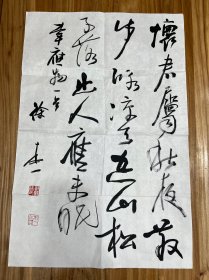 懷君屬秋夜散
步咏涼天空山松
子落幽人應未眠
韋應物一首 徐